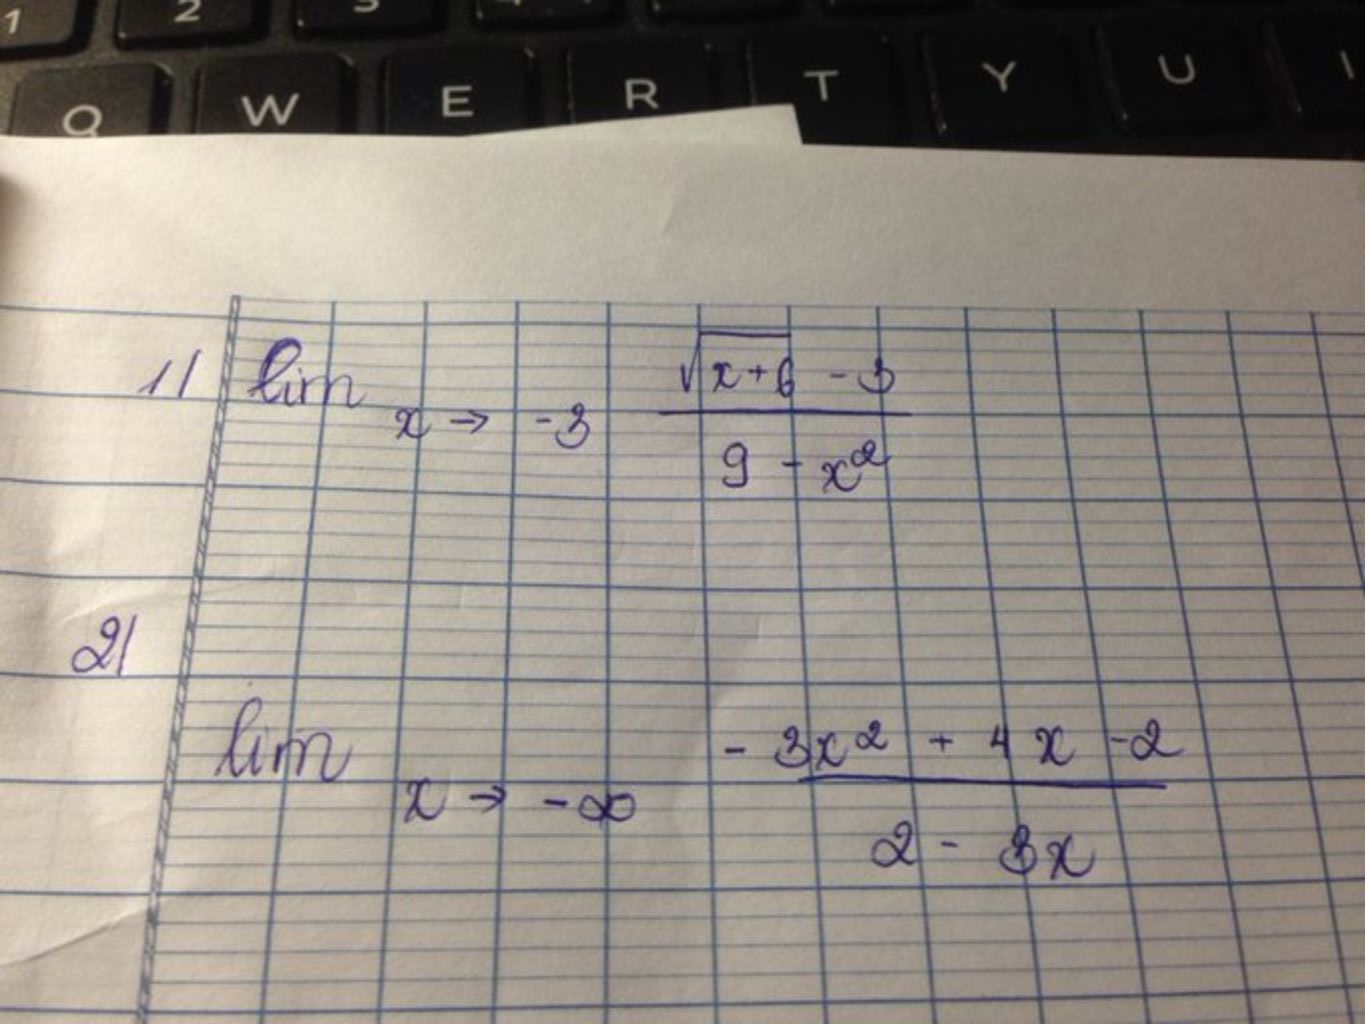 1 2 3
Q W E R T Y U I
1/ lim x → -3 (√(x+6) - 3) / (9 - x²)
2/
lim x → -∞ (- 3x² + 4x - 2) / (2 - 3x)